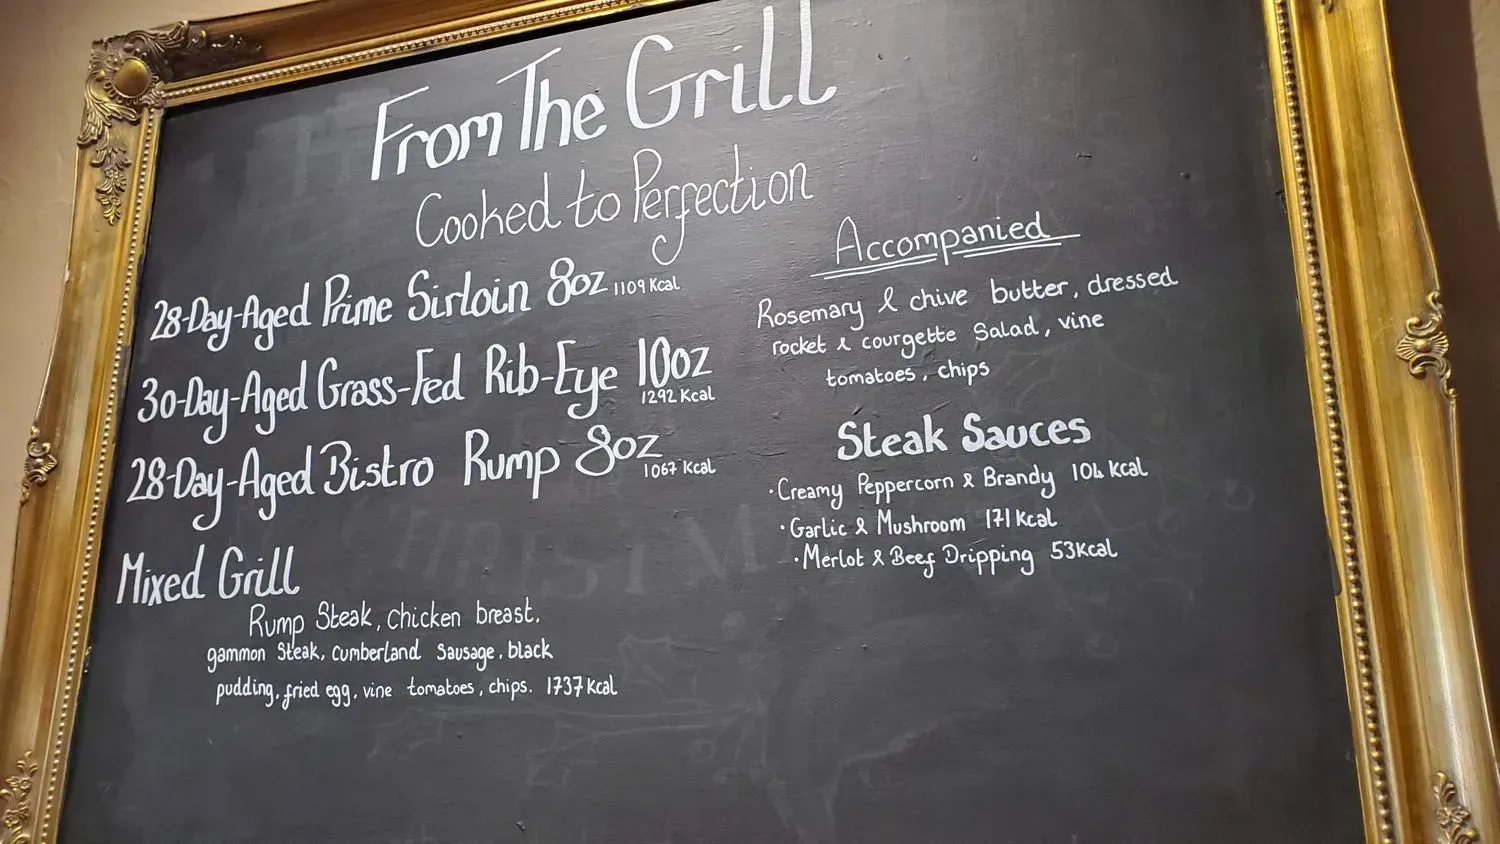 From The Grill
Cooked to Perfection
28-Day-Aged Prime Sirloin 8oz 1109 Kcal
30-Day-Aged Grass-Fed Rib-Eye 10oz
1292 Kcal
28-Day-Aged Bistro Rump 8oz
1067 Kcal
Mixed Grill
Rump Steak, chicken breast,
gammon Steak, cumberland Sausage, black
pudding, fried egg, vine tomatoes, chips. 1737 Kcal
Accompanied
Rosemary & chive butter, dressed
rocket & courgette Salad, vine
tomatoes, chips
Steak Sauces
·Creamy Peppercorn & Brandy 104 Kcal
·Garlic & Mushroom 171 Kcal
·Merlot & Beef Dripping 53Kcal
CHRISTM